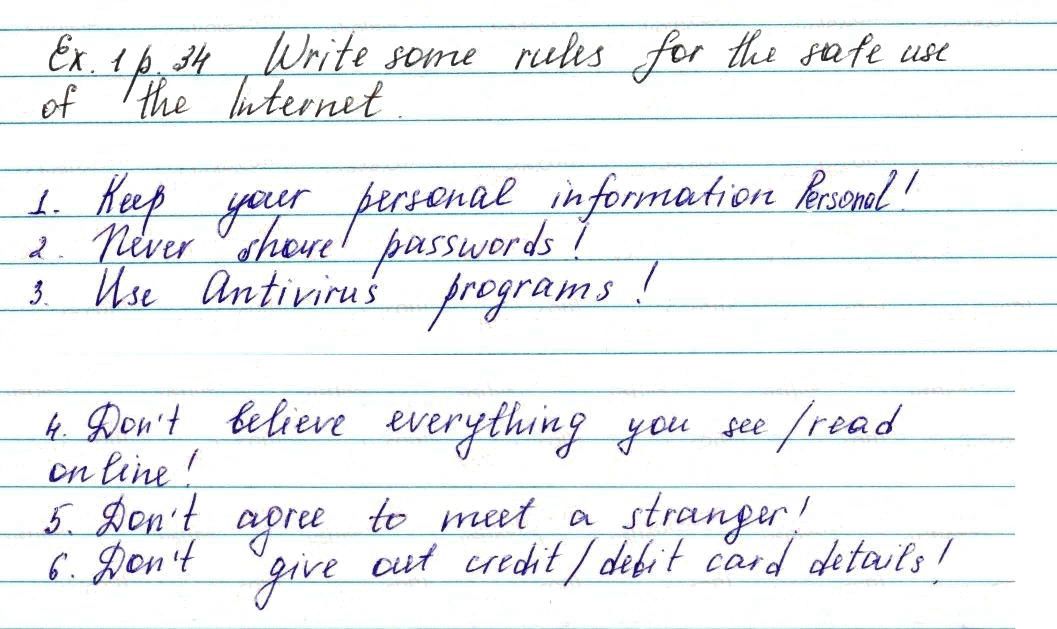 Ex. 1 p. 34 Write some rules for the safe use
of the Internet.
1. Keep your personal information Personal!
2. Never share passwords!
3. Use Antivirus programs!
4. Don't believe everything you see/read
online!
5. Don't agree to meet a stranger!
6. Don't give out credit/debit card details!